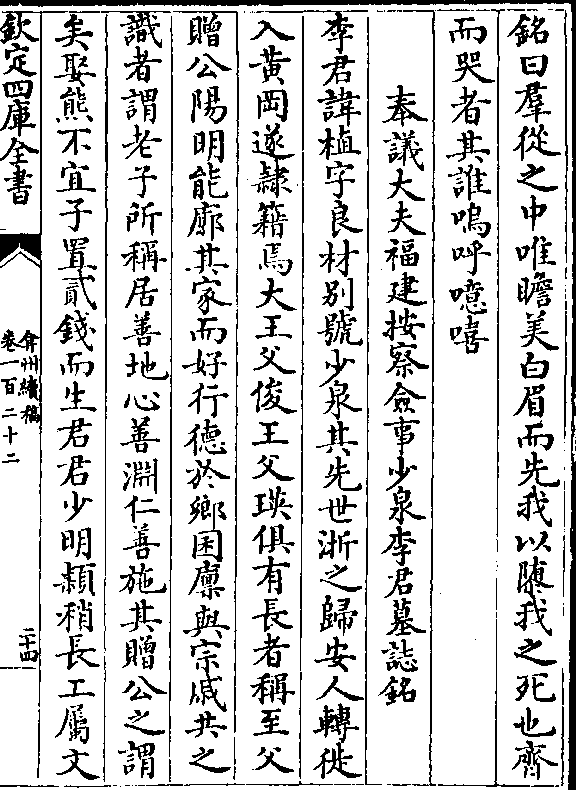 銘曰羣從之中唯瞻美白眉而先我以隕我之死也齊
而哭者其誰嗚呼噫嘻
奉議大夫福建按察僉事少泉李君墓誌銘
李君諱植字良材別號少泉其先世浙之歸安人轉徙
入黃岡遂隸籍焉大王父俊王父瑛俱有長者稱至父
贈公陽明能廓其家而好行德於鄉囷廩與宗戚共之
識者謂老子所稱居善地心善淵仁善施其贈公之謂
矣娶熊不宜子置貳錢而生君君少明纇稍長工屬文
欽定四庫全書
弇州續稿
卷一百二十二
二十四